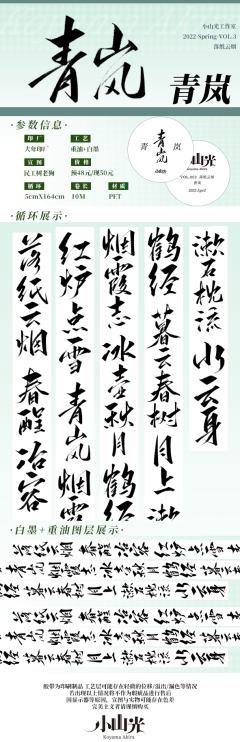 青岚
小山光工作室
2022-Spring-VOL.3
落纸云烟
青岚
·参数信息·
印厂
工艺
大年印厂
重油+白墨
宣图
价格
民工树老狗
预48元/现50元
循环
卷长
材质
5cmX164cm
10M
PET
青
岚
小山光
VOL.003 落纸云烟
青岚
2022 April
·循环展示·
漱石枕流 山云身
鹤经 暮云春树 月上 漱
烟霞志 冰壶秋月 鹤经
红炉点雪 青岚 烟霞
落纸云烟 春酲 冶容
·白墨+重油图层展示·
落纸云烟 春酲 冶容 红炉点雪
胶带为印刷制品 工艺层可能存在轻微的位移/溢出/漏色等情况
若出现以上情况将不作为瑕疵品进行售后
因显示器等原因，宣图与实物可能存在色差
完美主义者请谨慎购买
小山光
Koyama Akira